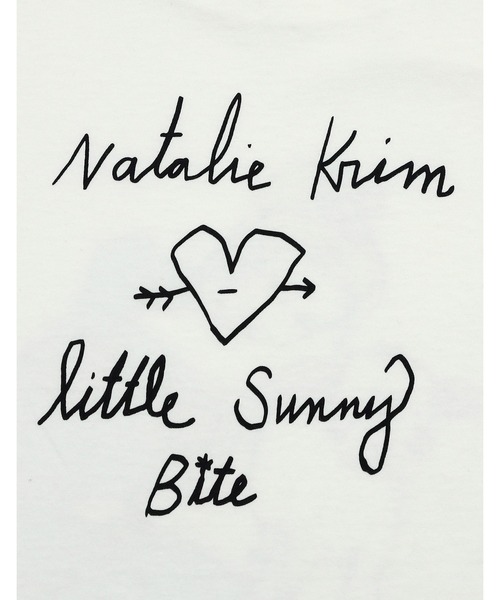 Natalie Krim
little Sunny
Bite